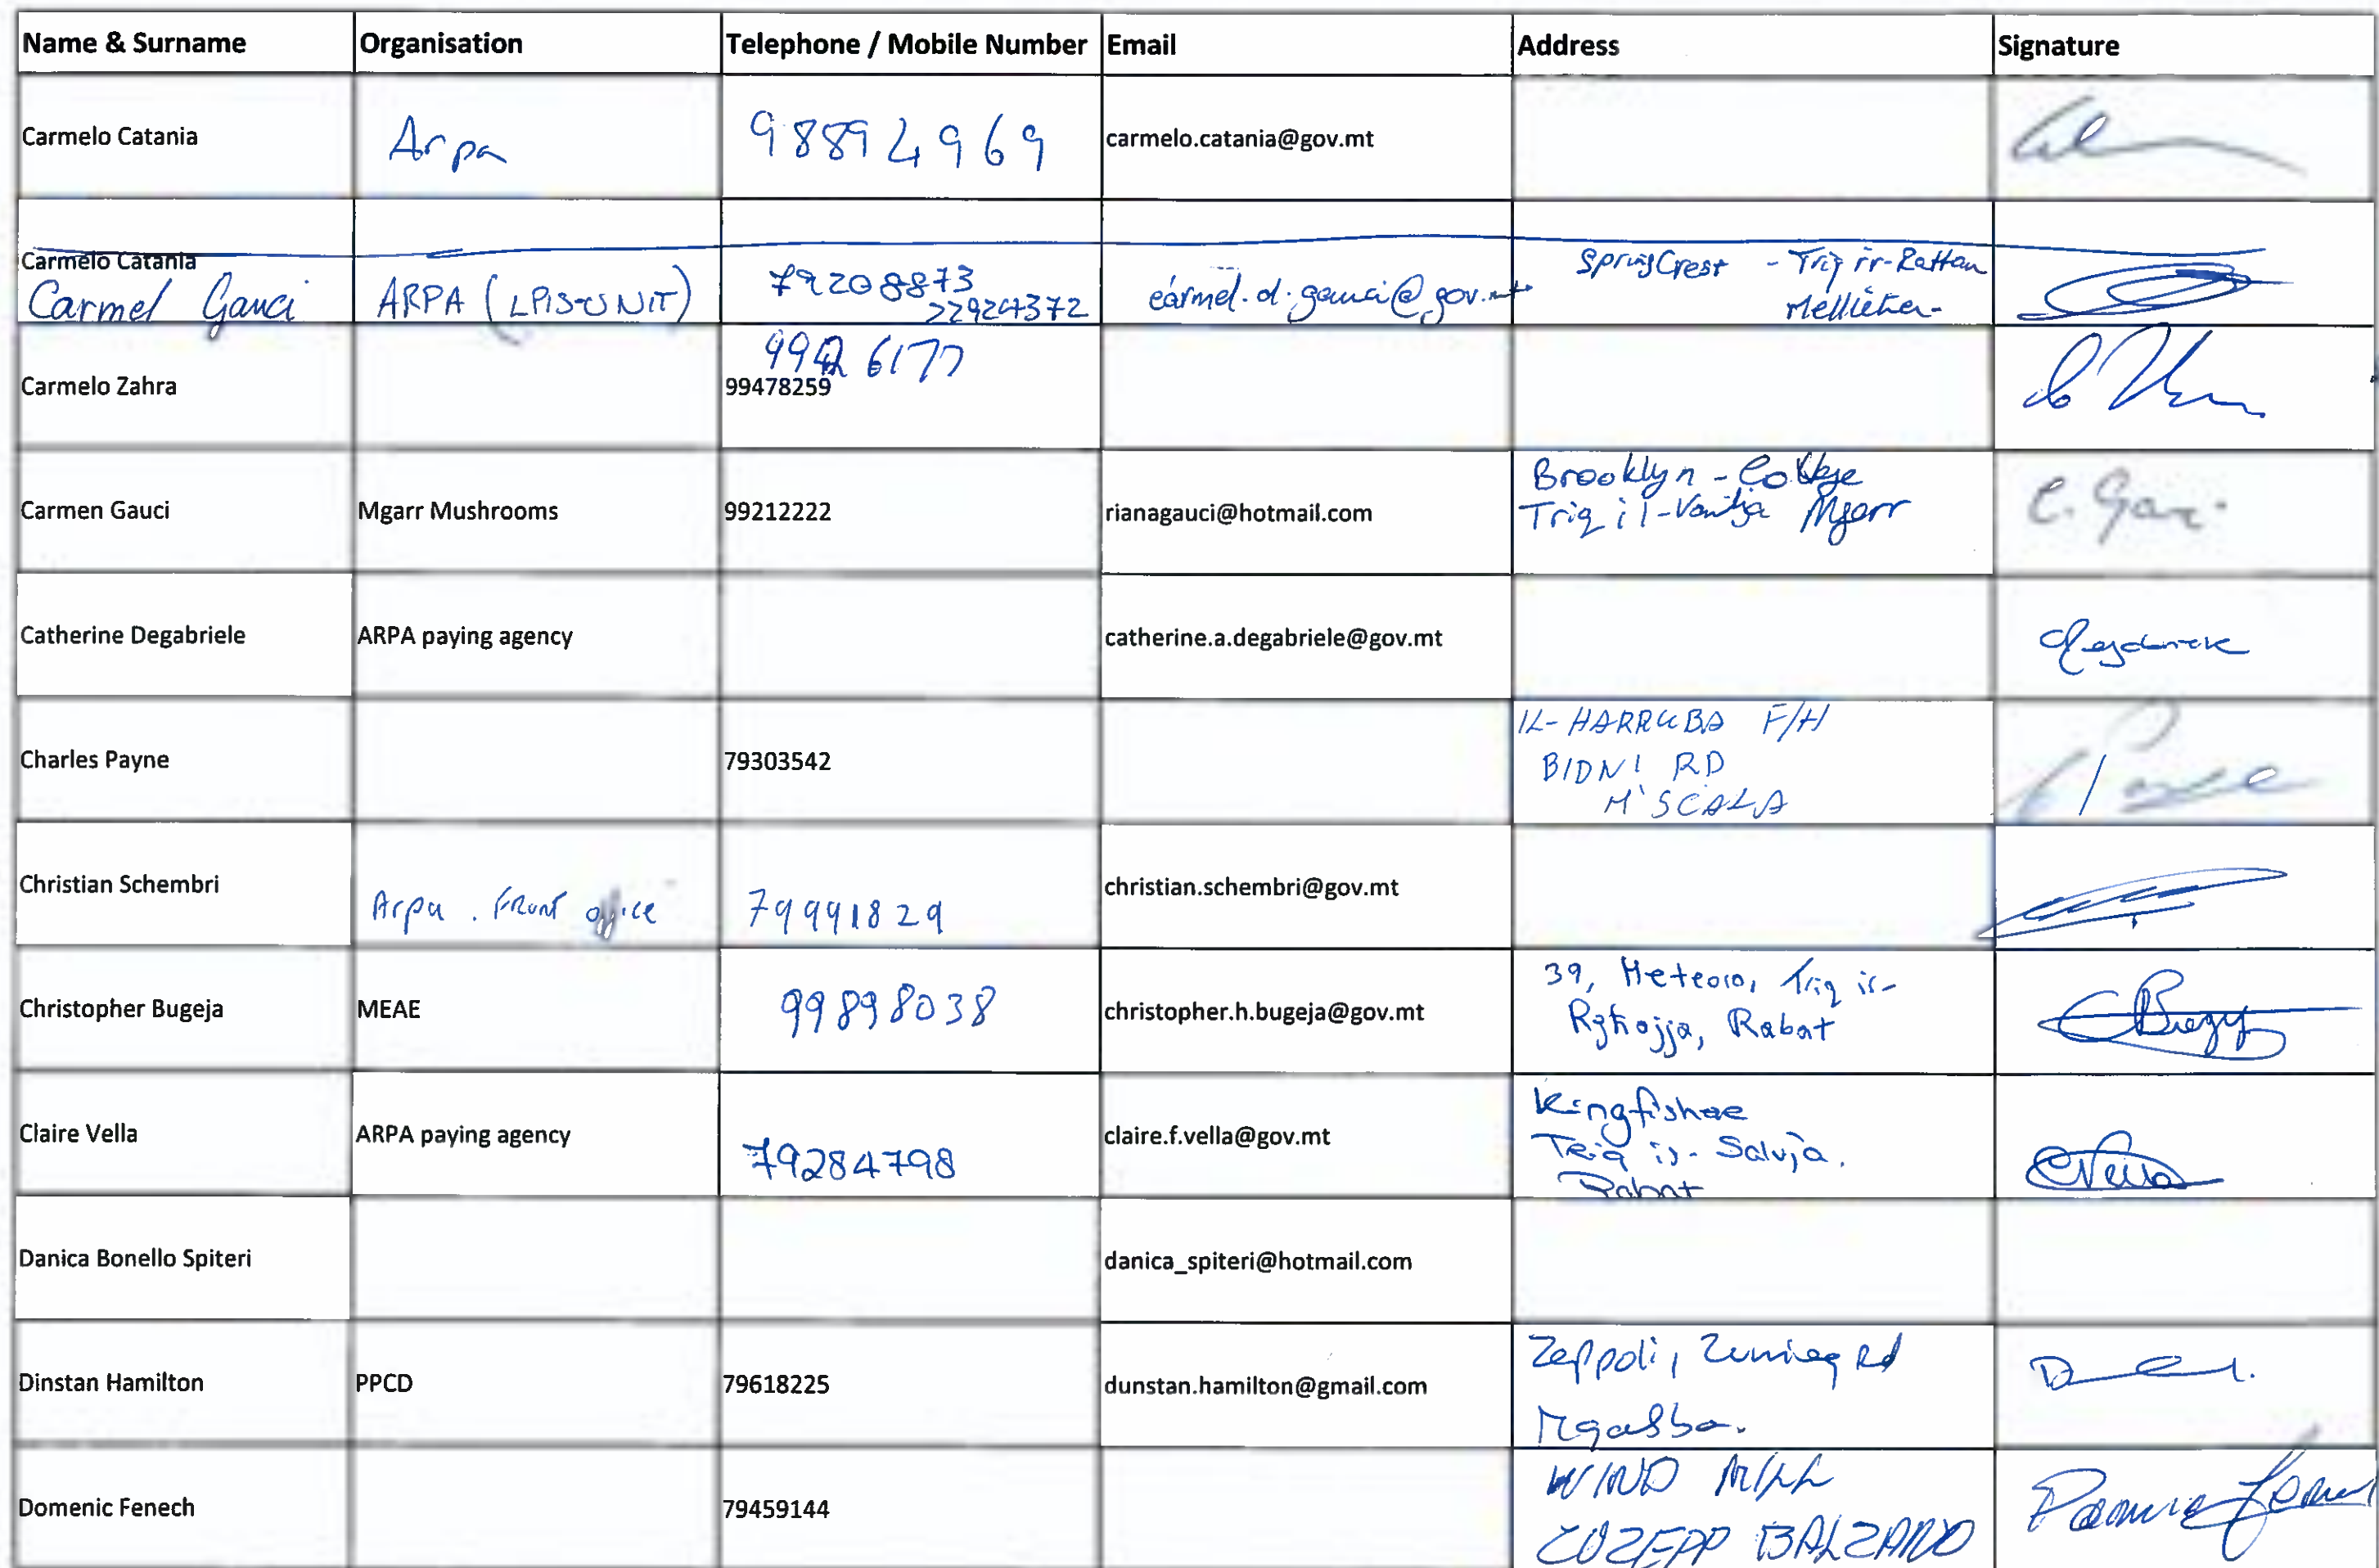 Name & Surname Organisation Telephone / Mobile Number Email Address Signature
Carmelo Catania Arpa 98894969 carmelo.catania@gov.mt
Carmelo Catania
Carmel Gauci ARPA (LPIS-UNIT) 79208873 22924372 carmel.d.gauci@gov.mt SpringCrest - Triq ir-Rattan
Mellieħa-
Carmelo Zahra 6177
99478259
Carmen Gauci Mgarr Mushrooms 99212222 rianagauci@hotmail.com Brooklyn - Cottage
Triq il- Mgarr C. Gauci
Catherine Degabriele ARPA paying agency catherine.a.degabriele@gov.mt
Charles Payne 79303542 IL-HARRUBA F/H
BIDNI RD
M'SCALA
Christian Schembri Arpa . Front office 79991829 christian.schembri@gov.mt
Christopher Bugeja MEAE 99898038 christopher.h.bugeja@gov.mt 39, Meteoro, Triq ir-
Rgħajja, Rabat
Claire Vella ARPA paying agency 79284798 claire.f.vella@gov.mt Kingfisher
Triq is-Salvja.
Rabat CVella
Danica Bonello Spiteri danica_spiteri@hotmail.com
Dinstan Hamilton PPCD 79618225 dunstan.hamilton@gmail.com Zeppoli, Rd
Mqabba.
Domenic Fenech 79459144 WIND MILL
BALZANO